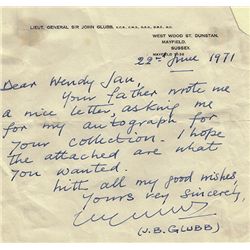 LIEUT. GENERAL SIR JOHN GLUBB, K.C.B., C.M.G., D.S.O., O.B.E., M.C.
WEST WOOD ST. DUNSTAN,
MAYFIELD,
SUSSEX.
MAYFIELD
22nd June 1971
Dear Wendy Jan,
Your father wrote me
a nice letter, asking me
for my autograph for
your collection. I hope
the attached are what
you wanted.
With all my good wishes,
Yours very sincerely,
(J.B. GLUBB)